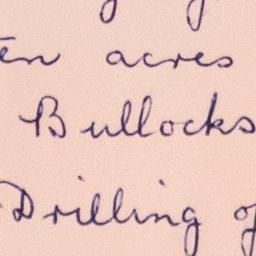 acres
Bullocks
Drilling of